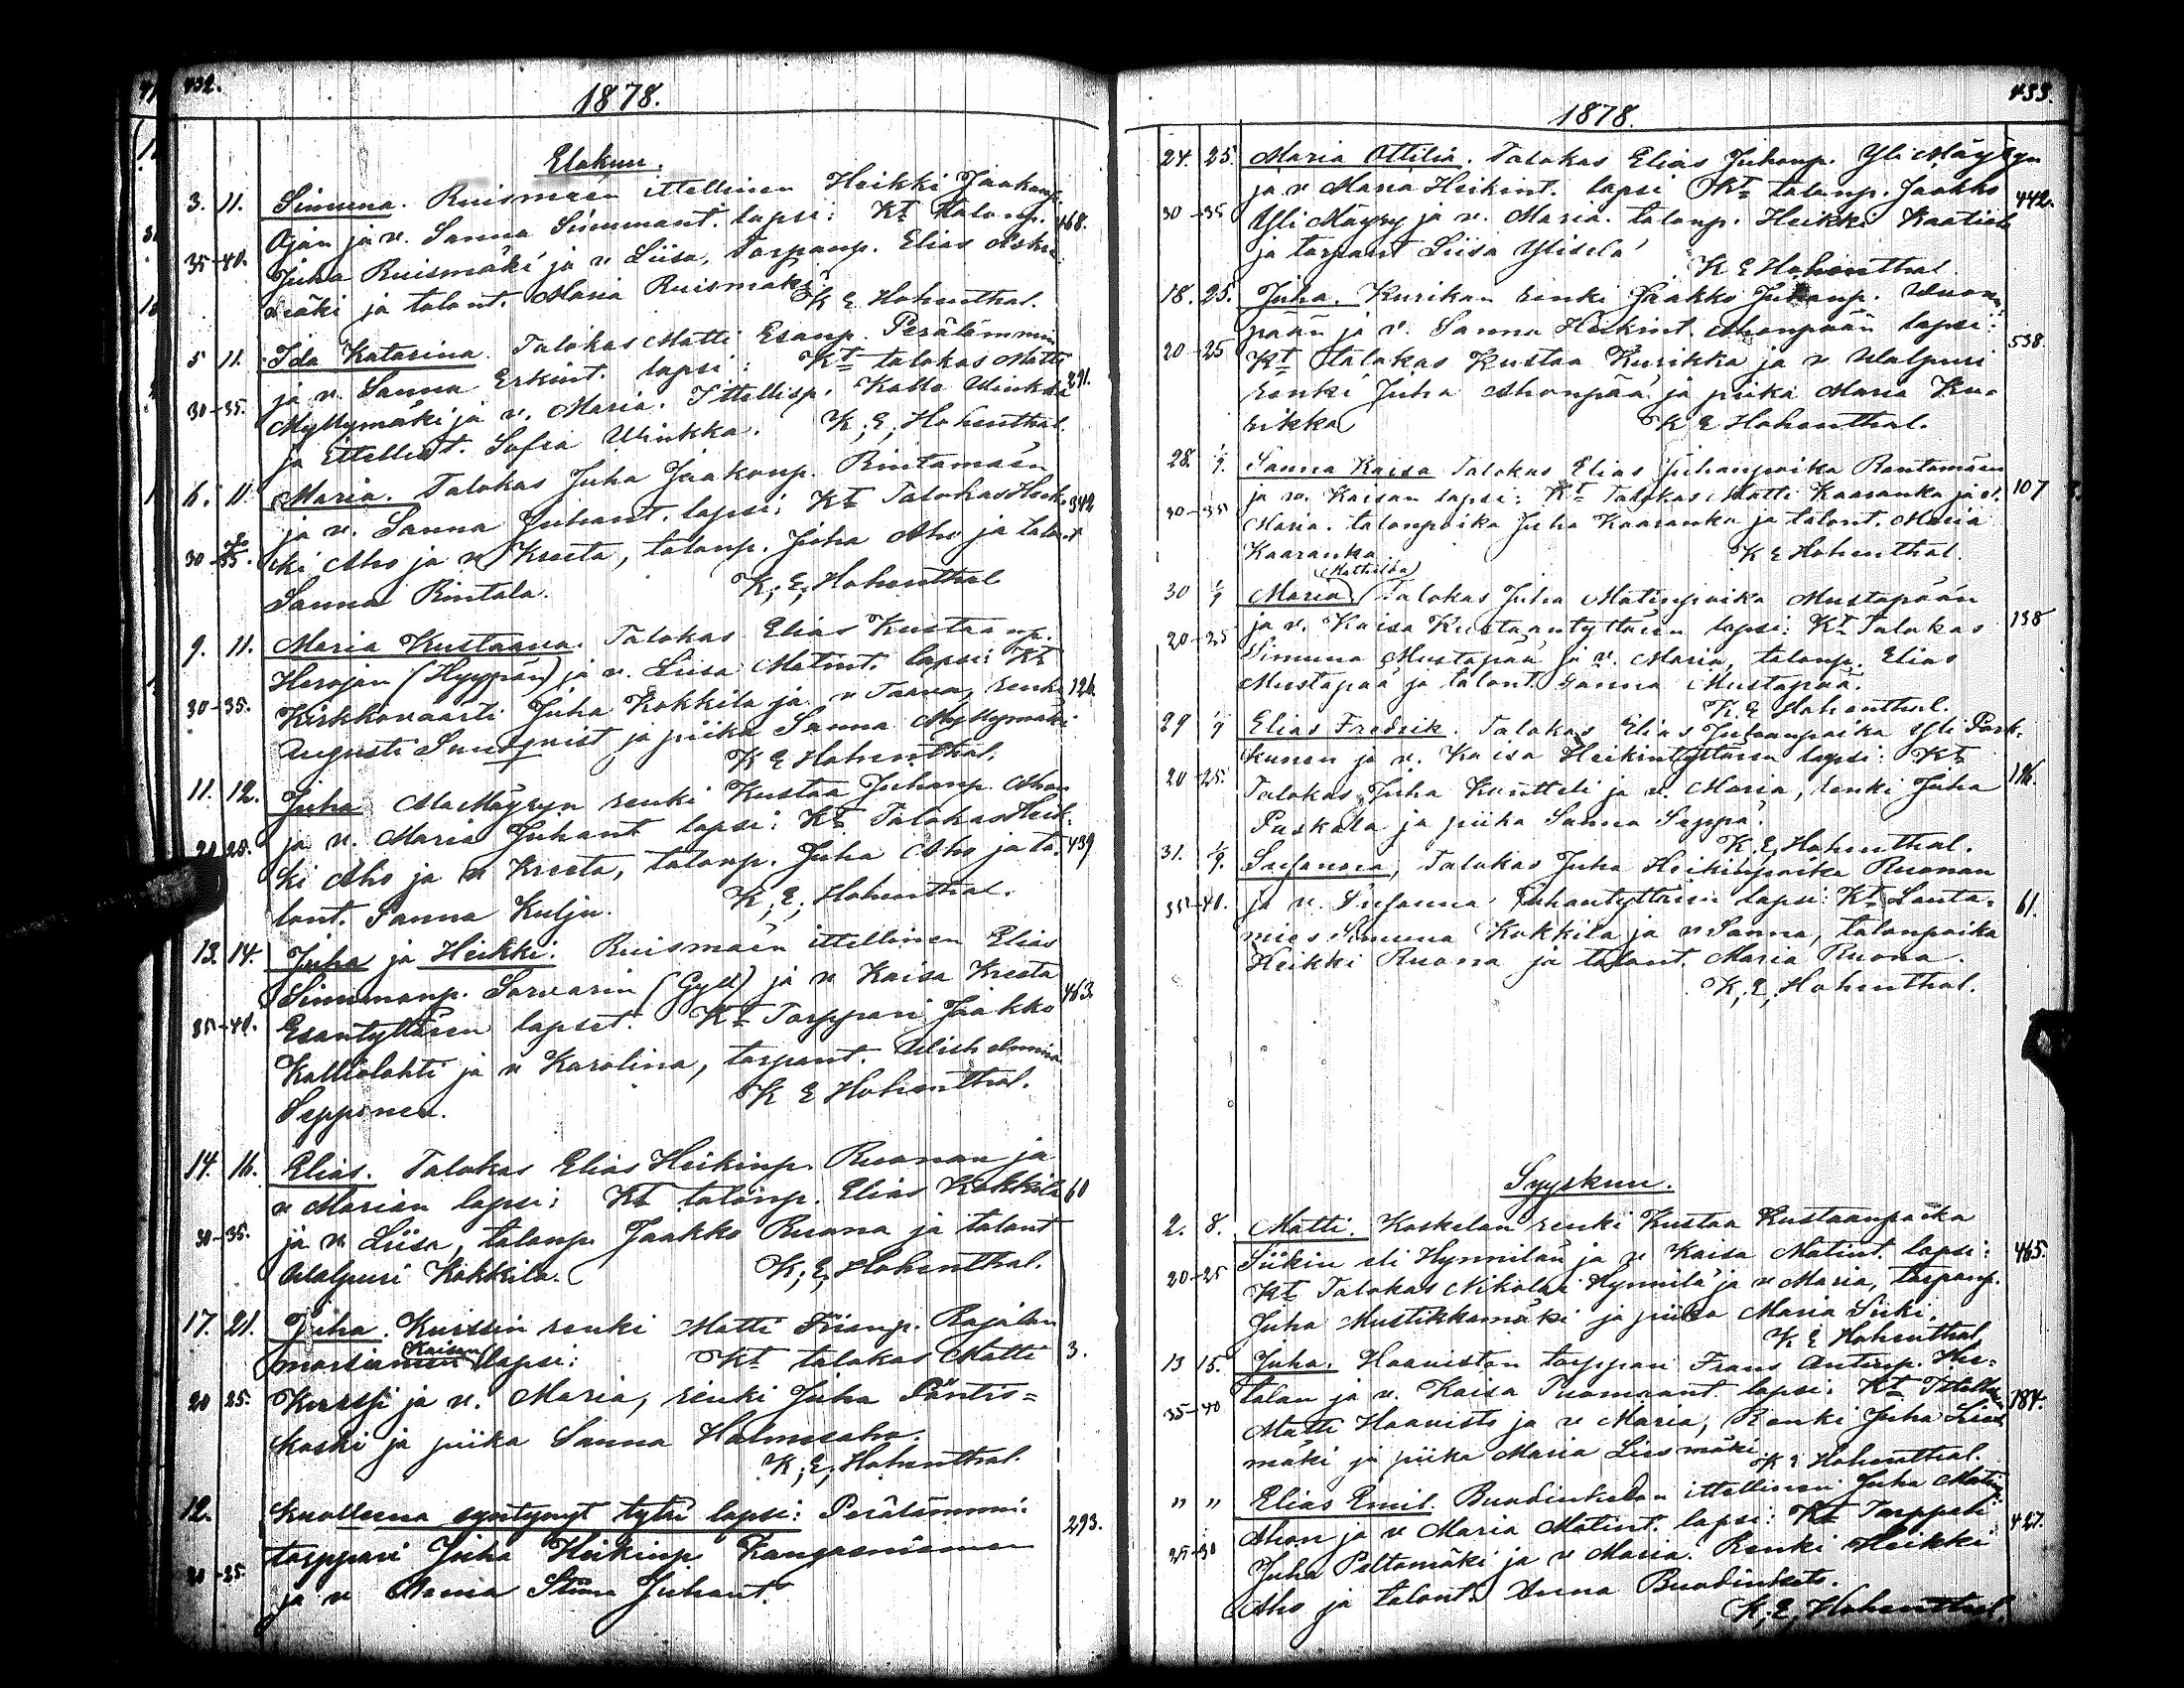 432.
1878.
Elokuu.
3. 11. Simuna. Ruismäen ittellinen Heikki Jaakonp.
Ojan ja v. Sanna Simmant. lapsi: Kt. Talonp. 468.
35-40. Juha Ruismäki ja v Liisa, Torpanp. Elias
mäki ja talont. Maria Ruismäki
K E Hohenthal.
5 11. Ida Katarina. Talokas Matti Esanp. Perälämmin
ja v. Sanna Erkint. lapsi: Kt talokas Matti 291.
30-35. Myllymäki ja v. Maria. Ittellisp. Kalle Winkka
ja ittellist. Sofia Winkka. K, E, Hohenthal.
6. 11 Maria. Talokas Juha Jaakonp. Rintamäen
ja v. Sanna Juhant. lapsi: Kt Talokas Heik- 342
30-35. ki Aho ja v Kreeta, talonp. Juha Aho ja talont
Sanna Rintala. K, E, Hohenthal
9. 11. Maria Kustaava. Talokas Elias Kustaanp.
Herojan (Hyypän) ja v. Liisa Matint. lapsi: Kt
30-35. Kirkkovaarti Juha Kokkila ja v Taava, renki 126.
Augusti Sundqvist ja piika Sanna Myllymäki
K E Hohenthal.
11. 12. Juha Ala Mäyryn renki Kustaa Juhanp. Ahon
ja v. Maria Juhant lapsi: Kt Talokas Heik-
20 25. ki Aho ja v Kreeta, talonp. Juha Aho ja ta- 439
lont. Sanna Kulju. K, E, Hohenthal.
13. 14. Juha ja Heikki. Ruismäen ittellinen Elias
Simmanp. Sorvarin (Gyll) ja v Kaisa Kreeta 463.
35-40. Esantyttären lapset: Kt Torppari Jaakko
Kalliolahti ja v Karolina, torpant. Wilhelmiina
Sepponen. K E Hohenthal.
14. 16. Elias. Talokas Elias Heikinp. Ruonan ja
v Marian lapsi: Kt talonp. Elias Kokkila 60
30-35. ja v. Liisa, talonp Jaakko Ruona ja talont
Walpuri Kokkila. K, E, Hohenthal.
17. 21. Juha. Kurssin renki Matti Iisanp. Rajalan
(Kaisan)
morsiamen lapsi: Kt talokas Matti 3.
20 25. Kurssi ja v. Maria, renki Juha Pöntis=
koski ja piika Sanna Holmesaho.
K, E, Hohenthal.
12. Kuolleena syntynyt tyttö lapsi: Perälämmi
torppari Juha Heikinp Kangasniemen 293.
20-25. ja v Anna Stiina Juhant.
433.
1878.
24. 25. Maria Ottilia. Talokas Elias Juhanp. Yli Mäyryn
ja v Maria Heikint. lapsi Kt talonp. Jaakko 442.
30-35 Yli Mäyry ja v. Maria. talonp. Heikki Kaatiala
ja torpant Liisa Ylisela
K E Hohenthal.
18. 25. Juha. Kurikan renki Jaakko Juhanp.
pään ja v. Sanna Heikint. Ahonpään lapsi: 538.
20-25 Kt talokas Kustaa Kurikka ja v Walpuri
renki Juha Ahonpää ja piika Maria Ku-
rikka K E Hohenthal.
28. 1/9. Sanna Kaisa Talokas Elias Juhanpoika Rantamäen
ja v. Kaisan lapsi: Kt Talokas Matti Kaaranka ja v. 107
30-35 Maria. talonpoika Juha Kaaranka ja talont. Maria
Kaaranka. K E Hohenthal.
(Mathilda)
30 1/9 Maria. Talokas Juha Matinpoika Mustapään
ja v. Kaisa Kustaantyttären lapsi: Kt Talokas 138
20-25 Simuna Mustapää ja v. Maria, talonp. Elias
Mustapää ja talont. Sanna Mustapää.
K. E Hohenthal.
29 1/9 Elias Fredrik. Talokas Elias Juhanpoika Yli Pork-
kunen ja v. Kaisa Heikintyttären lapsi: Kt
20-25. Talokas Juha Kuntteli ja v. Maria, renki Juha 116.
Paskala ja piika Sanna Seppä.
K. E, Hohenthal.
31. 1/9. Susanna, Talokas Juha Heikinpoika Ruonan
35-40. ja v. Susanna Juhantyttären lapsi: Kt Lauta- 61.
mies Simuna Kokkila ja v Sanna, talonpoika
Heikki Ruona ja talont. Maria Ruona.
K, E, Hohenthal.
Syyskuu.
2. 8. Matti. Koskelan renki Kustaa Kustaanpoika
Siikin eli Hynnilän ja v Kaisa Matint. lapsi: 465.
20-25 Kt Talokas Nikolai Hynnilä ja v Maria, torpanp.
Juha Mustikkamäki ja piika Maria Siiki.
K E Hohenthal,
13 15. Juha. Haaviston torppari Frans Antinp. Hie-
talan ja v. Kaisa Tuomaant. lapsi: Kt 184.
35-40 Matti Haavisto ja v Maria, Renki Juha
mäki ja piika Maria Liesmäki.
K E Hohenthal.
" " Elias Emil. Bundinkedon ittellinen Juha Matinp.
Ahon ja v Maria Matint. lapsi: Kt Torppari 427.
25-30 Juha Peltomäki ja v Maria. Renki Heikki
Aho ja talont. Anna Bundinketo.
K. E, Hohenthal